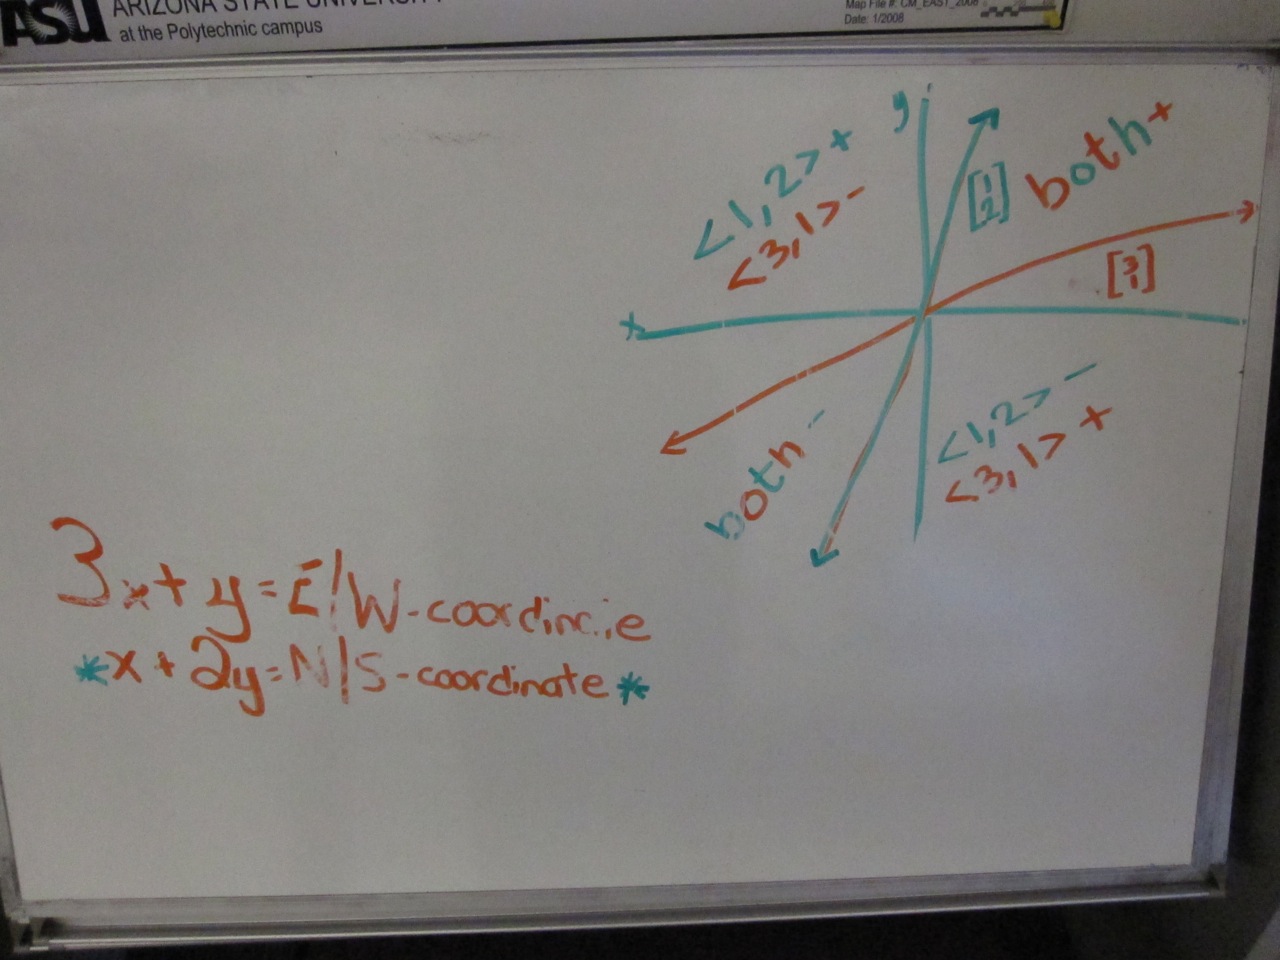 ASU
ARIZONA STATE UNIVERSITY
at the Polytechnic campus
Map File #: CM_EAST_2008
Date: 1/2008
y
<1,2> +
<3,1> -
[1 2]
both +
[3 1]
x
<1,2> -
<3,1> +
both -
3x + y = E/W-coordinate
*x + 2y = N/S-coordinate*